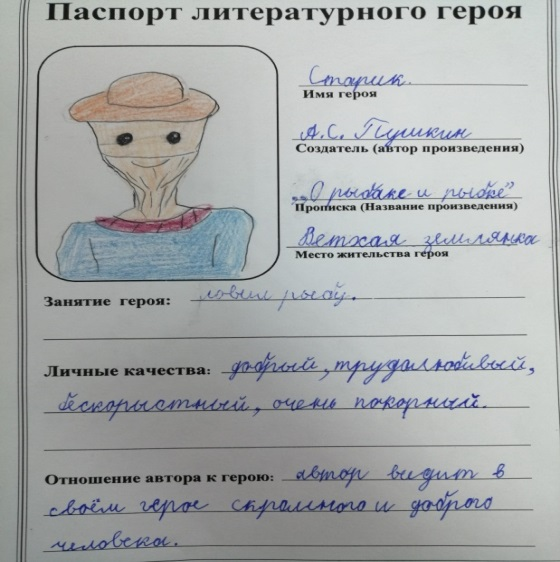 Паспорт литературного героя
Старик.
Имя героя
А.С. Пушкин
Создатель (автор произведения)
„О рыбаке и рыбке”
Прописка (Название произведения)
Ветхая землянка
Место жительства героя
Занятие героя: ловил рыбу.
Личные качества: добрый, трудолюбивый,
бескорыстный, очень покорный.
Отношение автора к герою: автор видит в
своём герое скромного и доброго
человека.